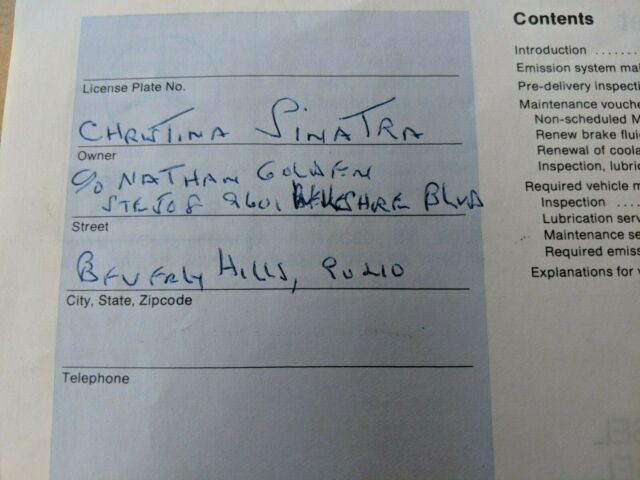 License Plate No.
CHRISTINA SINATRA
Owner
c/o NATHAN GOLDEN
STE 508 9601, WILSHIRE BLVD
Street
BEVERLY HILLS, 90210
City, State, Zipcode
Telephone
Contents
Introduction ......
Emission system mai
Pre-delivery inspecti
Maintenance vouche
Non-scheduled M
Renew brake flui
Renewal of coola
Inspection, lubric
Required vehicle m
Inspection ....
Lubrication serv
Maintenance se
Required emiss
Explanations for v